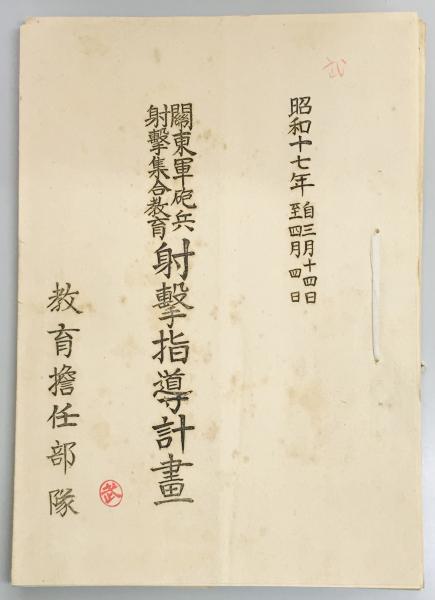 昭和十七年 自三月十四日
至四月四日
關東軍砲兵
射擊集合教育
射擊指導計畫
教育擔任部隊
武